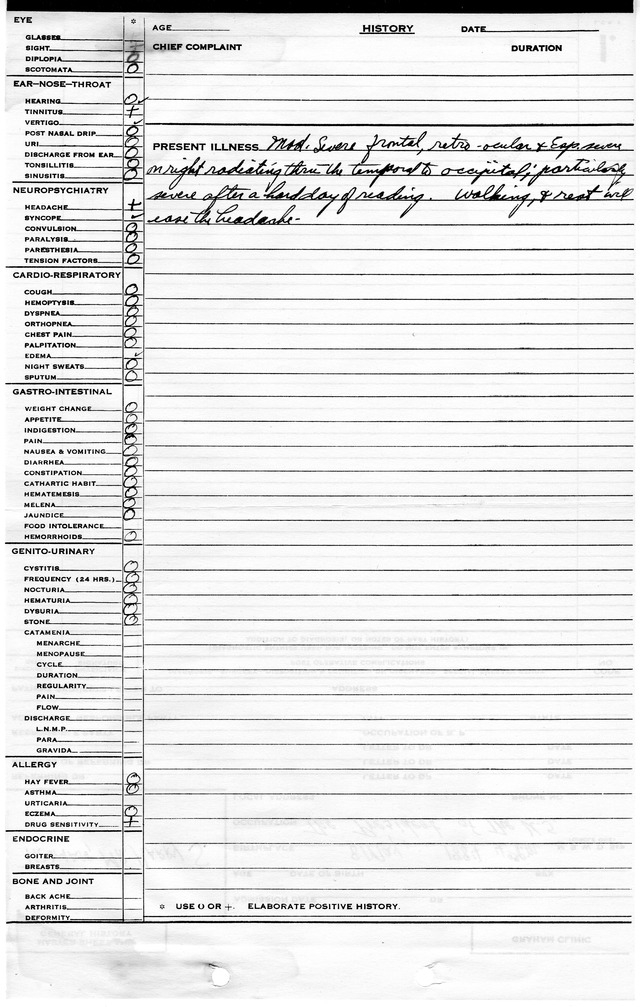 EYE *
GLASSES
SIGHT +
DIPLOPIA O
SCOTOMATA O
EAR—NOSE—THROAT
HEARING O ✓
TINNITUS +
VERTIGO ✓
POST NASAL DRIP O
URI O
DISCHARGE FROM EAR O
TONSILLITIS O
SINUSITIS O
NEUROPSYCHIATRY
HEADACHE +
SYNCOPE ✓
CONVULSION O
PARALYSIS O
PARESTHESIA O
TENSION FACTORS O
CARDIO-RESPIRATORY
COUGH O
HEMOPTYSIS O
DYSPNEA O
ORTHOPNEA O
CHEST PAIN O
PALPITATION O
EDEMA ✓
NIGHT SWEATS O
SPUTUM O
GASTRO-INTESTINAL
WEIGHT CHANGE O
APPETITE O
INDIGESTION O
PAIN O
NAUSEA & VOMITING O
DIARRHEA O
CONSTIPATION O
CATHARTIC HABIT O
HEMATEMESIS O
MELENA O
JAUNDICE O
FOOD INTOLERANCE
HEMORRHOIDS O
GENITO-URINARY
CYSTITIS O
FREQUENCY (24 HRS.) O
NOCTURIA O
HEMATURIA O
DYSURIA O
STONE O
CATAMENIA
MENARCHE
MENOPAUSE
CYCLE
DURATION
REGULARITY
PAIN
FLOW
DISCHARGE
L.N.M.P.
PARA
GRAVIDA
ALLERGY
HAY FEVER O
ASTHMA O
URTICARIA
ECZEMA O
DRUG SENSITIVITY +
ENDOCRINE
GOITER
BREASTS
BONE AND JOINT
BACK ACHE
ARTHRITIS
DEFORMITY
AGE HISTORY DATE
CHIEF COMPLAINT DURATION
PRESENT ILLNESS Mod. Severe frontal, retro-ocular & Esp. severe
on right radiating thru the temporal to occipital; particularly
severe after a hard day of reading. Walking, & rest will
ease the headache-
* USE O OR +. ELABORATE POSITIVE HISTORY.